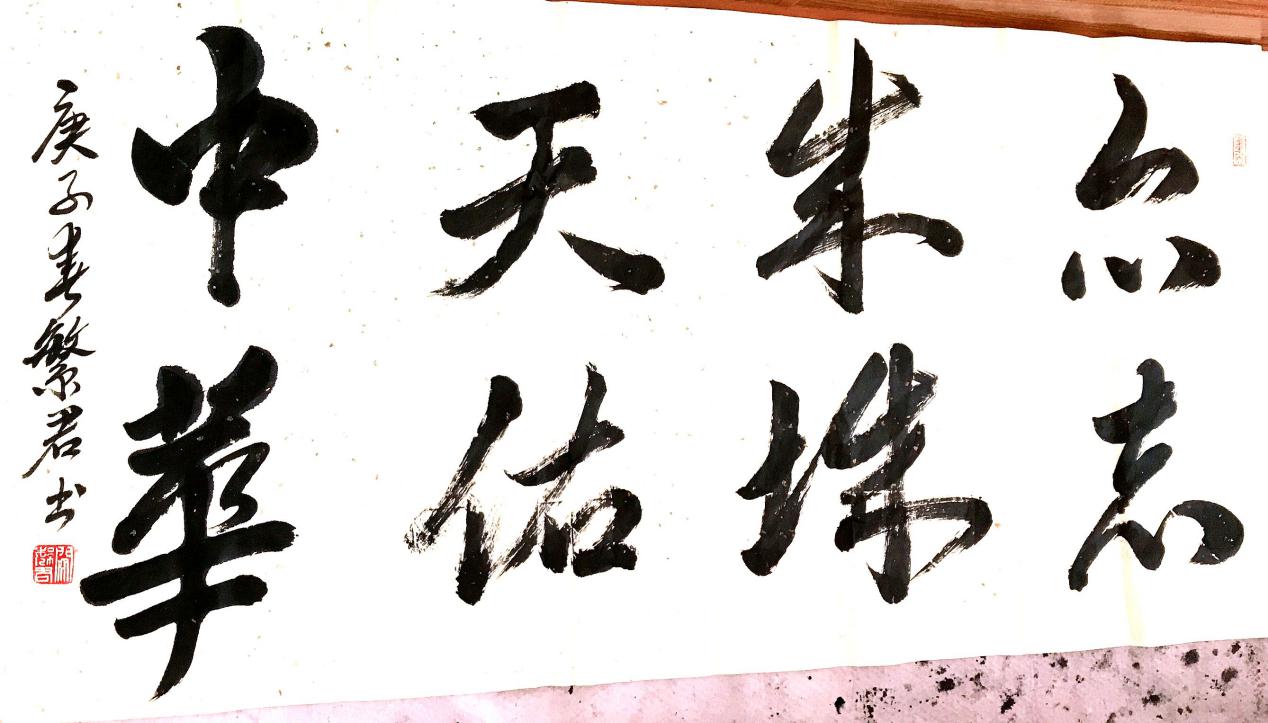 众志
成城
天佑
中華
庚子春繁君书